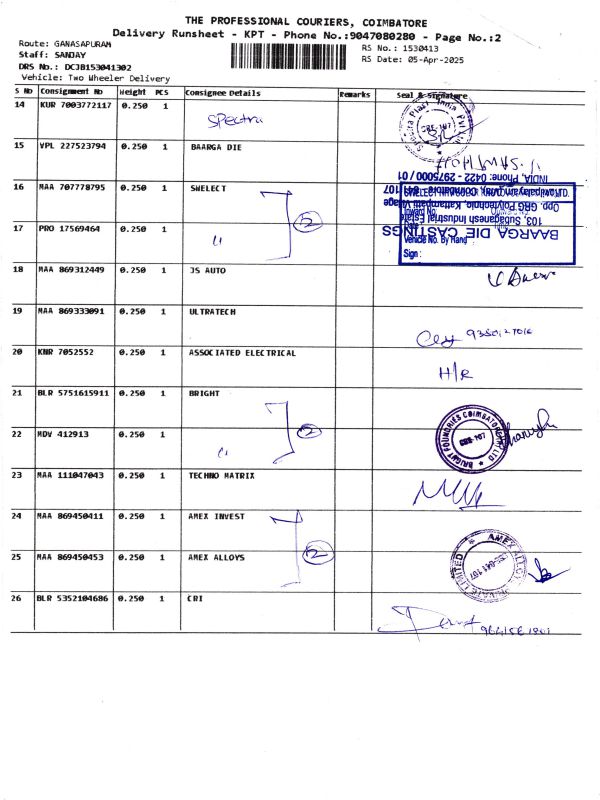 THE PROFESSIONAL COURIERS, COIMBATORE
Delivery Runsheet - KPT - Phone No.:9047080280 - Page No.:2
Route: GANASAPURAM
RS No.: 1530413
Staff: SANJAY
RS Date: 05-Apr-2025
DRS No.: DCJB153041302
Vehicle: Two Wheeler Delivery
S No Consignment No Weight PCS Consignee Details Remarks Seal & Signature
14 KUR 7003772117 0.250 1 Spectra
Spectra Plast India Pvt
CBE-107
15 VPL 227523794 0.250 1 BAARGA DIE
BAARGA DIE CASTINGS
103, Subaganesh Industrial Estate
Opp. GRG Polytechnic, Kattampatti Village
INDIA, Phone: 0422 - 2975000 / 01
Vehicle No. By Hand
Sign :
16 MAA 707778795 0.250 1 SWELECT 2
17 PRO 17569464 0.250 1 "
18 MAA 869312449 0.250 1 JS AUTO
19 MAA 869333091 0.250 1 ULTRATECH
20 KNR 7052552 0.250 1 ASSOCIATED ELECTRICAL H/R
21 BLR 5751615911 0.250 1 BRIGHT 2
BRIGHT FOUNDRIES COIMBATORE PVT LTD
CBE-107
22 MDV 412913 0.250 1 "
23 MAA 111047043 0.250 1 TECHNO MATRIX
24 MAA 869450411 0.250 1 AMEX INVEST 2
25 MAA 869450453 0.250 1 AMEX ALLOYS
AMEX ALLOYS PRIVATE LIMITED
CBE-641 107
26 BLR 5352104686 0.250 1 CRI